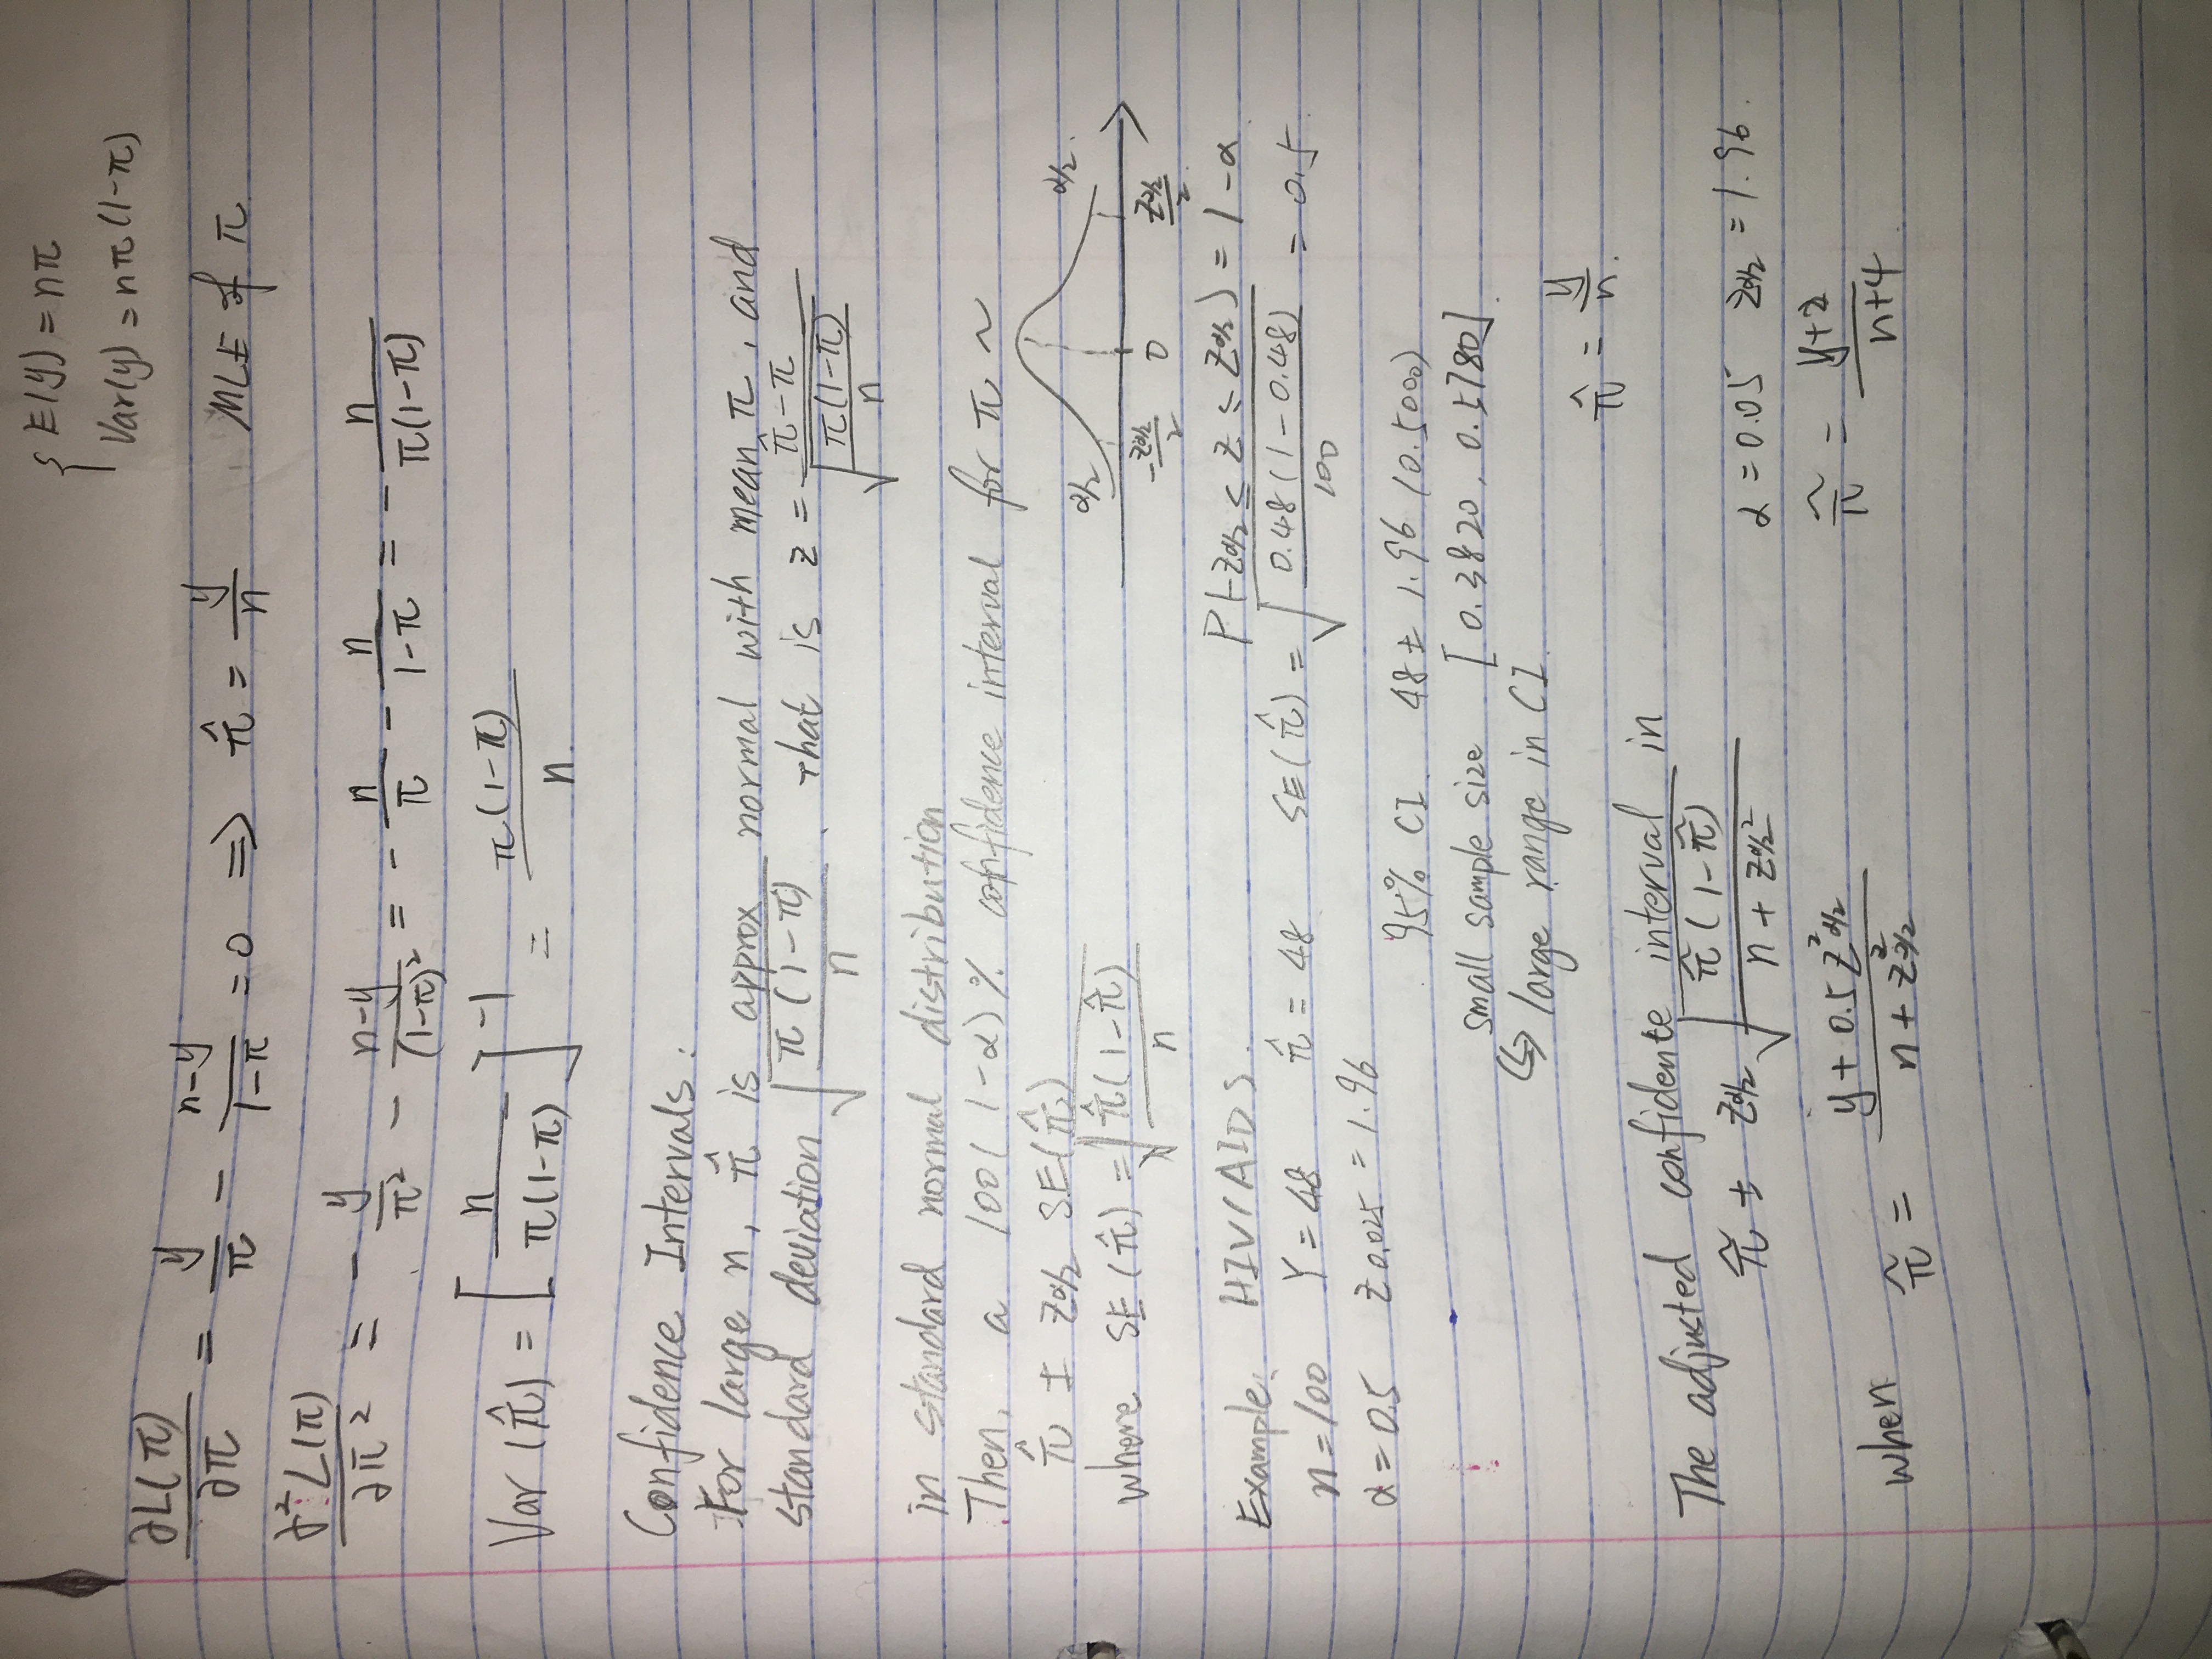 { E(y) = nπ
Var(y) = nπ(1-π)
∂L(π)/∂π = y/π - n-y/1-π = 0 ⇒ π̂ = y/n MLE of π
∂²L(π)/∂π² = - y/π² - n-y/(1-π)² = - n/π - n/1-π = - n/π(1-π)
Var(π̂) = [n/π(1-π)]⁻¹ = π(1-π)/n
Confidence Intervals:
For large n, π̂ is approx normal with mean π, and
standard deviation √π(1-π)/n , that is z = π̂-π/√π(1-π)/n
in standard normal distribution
Then, a 100(1-α)% confidence interval for π ~
π̂ ± zα/2 SE(π̂)
where SE(π̂) = √π̂(1-π̂)/n
α/2 α/2
-zα/2 0 zα/2
P(-zα/2 ≤ z ≤ zα/2) = 1-α
Example: HIV/AIDS.
n=100 Y=48 π̂ = 48 SE(π̂) = √0.48(1-0.48)/100 = 0.5
α=0.5 z0.025 = 1.96
95% CI 48 ± 1.96 (0.500)
small sample size [0.3820, 0.5780]
↳ large range in CI
π̂ = y/n.
The adjusted confidente interval in
π̃ ± zα/2 √π̃(1-π̃)/n + zα/2² α=0.05 zα/2 = 1.96.
when π̃ = y + 0.5 z²α/2/n + z²α/2 π̃ = y+2/n+4